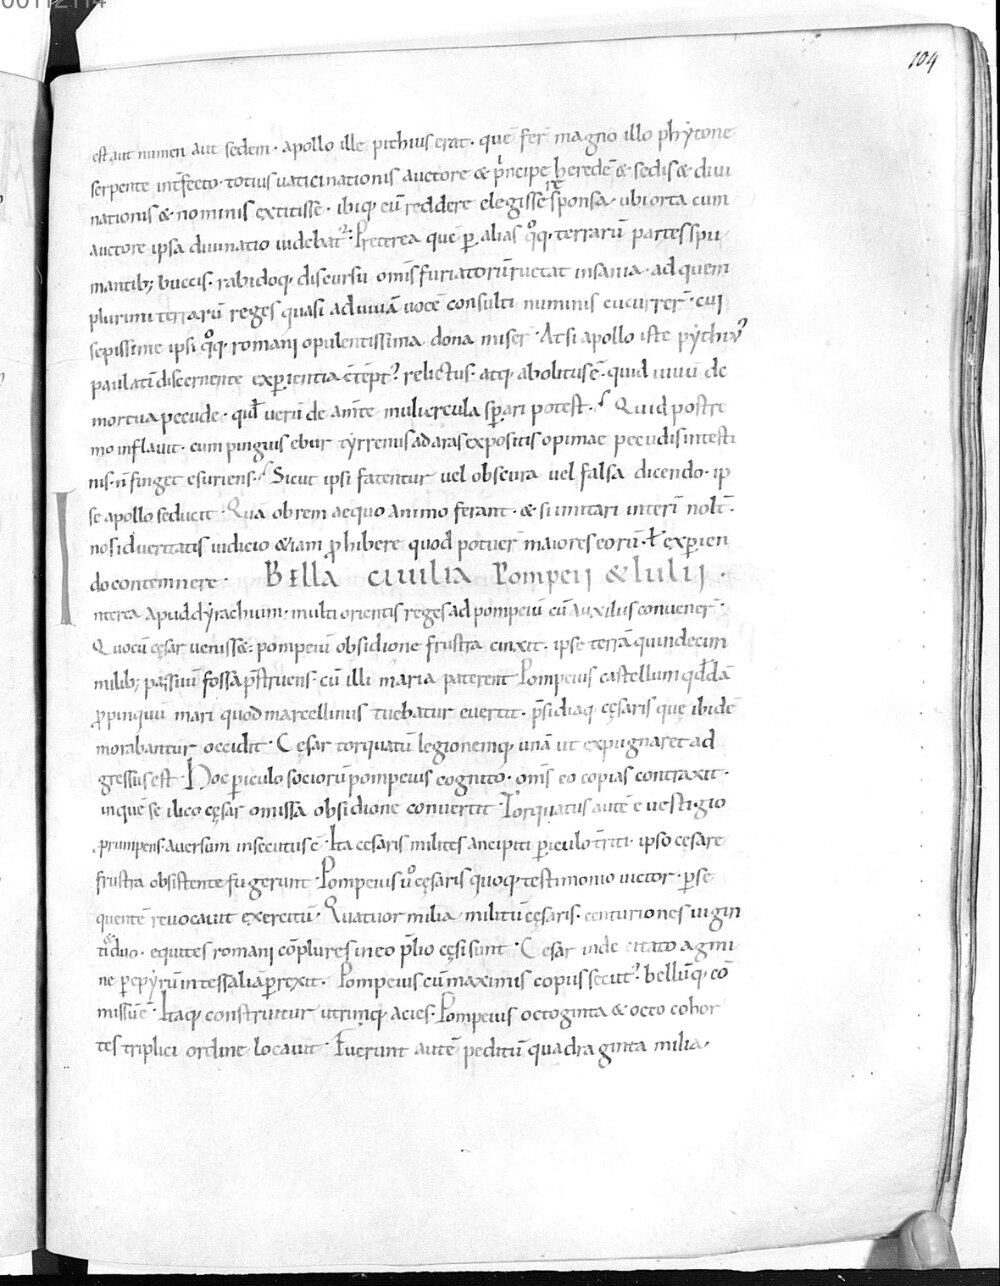 00112114
104
est aut numen aut sedem · apollo ille pithius erat · quē ferī magno illo phẏtone
serpente intfecto · totius uaticinationis auctore & pncipe heredē & sedis & diui
nationis & nominis extitisse · ibiq; eū reddere elegisse responsa · ubi orta cum
auctore ipsa diuinatio uidebat · Preterea quē p alias qoq; terrarū partes spu
mantib; buccis · rabidoq; discursu omis furiatorū ructat insania · ad quem
plurimi terrarū reges quasi ad uiuā uocē consulti numinis cucurrer̄ · cui
sepissime ipsi qoq; romani opulentissima dona miser̄ · At si apollo iste pẏthius
paulatī discernente expientia ctēpt' relictus · atq; abolitus ē · quid uiuū de
mortua pecude · qd uerū de amte muliercula spari potest · Quid postre
mo inflauit · cum pinguis ebur tẏrrenus ad aras expositis opimae pecudis intesti
nis · ñ finget esuriens · Sicut ipsi fatentur uel obscura uel falsa dicendo · ip
se apollo seducit · Qua obrem aequo animo ferant · & si imitari interī nolt̄ ·
nos id ueritatis iudicio etiam phibere quod potuer̄ maiores eorū · ł expien
do contemnere · BElla ciuilia Pompeii & Iulii ·
Interea apud dẏrachium · multi orientis reges ad pompeiū cū auxiliis conuener̄ ·
Quo cū cęsar uenisset · pompeiū obsidione frustra cinxit · ipse terrā quindecim
milib; passuū fossā pstruens · cū illi maria paterent Pompeius castellum qddā
ppinquū mari quod marcellinus tuebatur euertit · psidiaq; cęsaris quę ibidē
morabantur occidit · Cęsar torquatū legionemq; unā ut expugnaret ad
gressus est · Hoc piculo sociorū pompeius cognito · oms eo copias contraxit ·
in quē se ilico cęsar omissa obsidione conuertit · Torquatus autē e uestigio
prumpens · auersum insecutus ē · Ita cesaris milites ancipiti piculo t̄riti · ipso cęsare
frustra obsistente fugerunt · Pompeius ů cęsaris quoq; testimonio uictor · pse
quentē reuocauit exercitū · Quatuor milia militū cęsaris · centuriones uigin
ti & duo · equites romani cōplures in eo plio cęsi sunt · Cesar inde citato agmi
ne p epẏrū in tessaliā prexit · Pompeius cū maximis copiis secut' · bellūq; cō
missū ē · Itaq; construitur utrimq; acies · Pompeius octoginta & octo cohor
tes triplici ordine locauit · Fuerunt autē peditū quadraginta milia ·